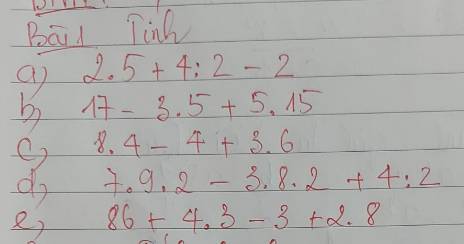 Bài 1 Tính
a) 2.5 + 4:2 - 2
b) 17 - 3.5 + 5.15
c) 8.4 - 4 + 3.6
d) 7.9.2 - 3.8.2 + 4:2
e) 86 + 4.3 - 3 + 2.8